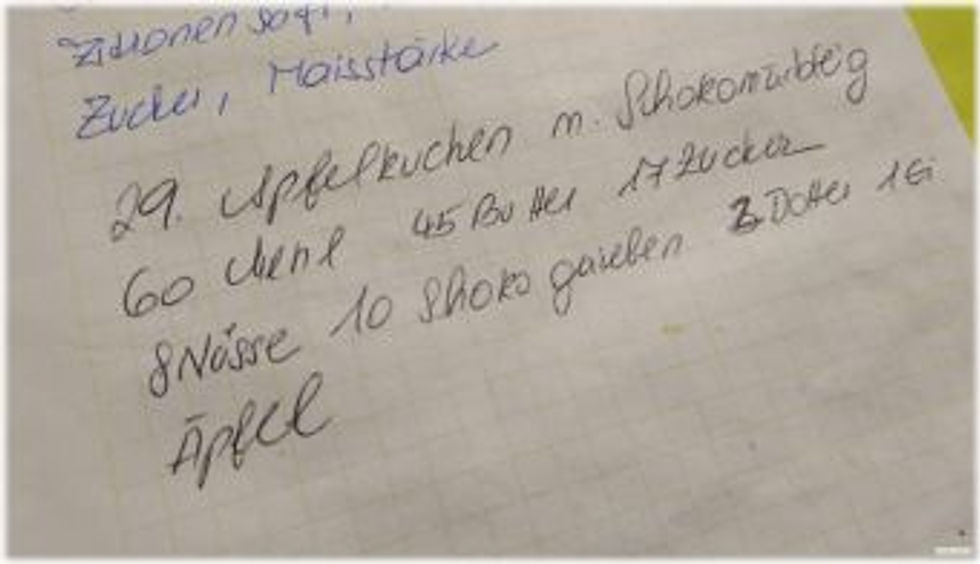 Zitronensaft,
Zucker, Maisstärke
29. Apfelkuchen m. Schokomürbteig
60 Mehl 45 Butter 17 Zucker
8 Nüsse 10 Schoko gerieben 3 Dotter 1 Ei
Äpfel